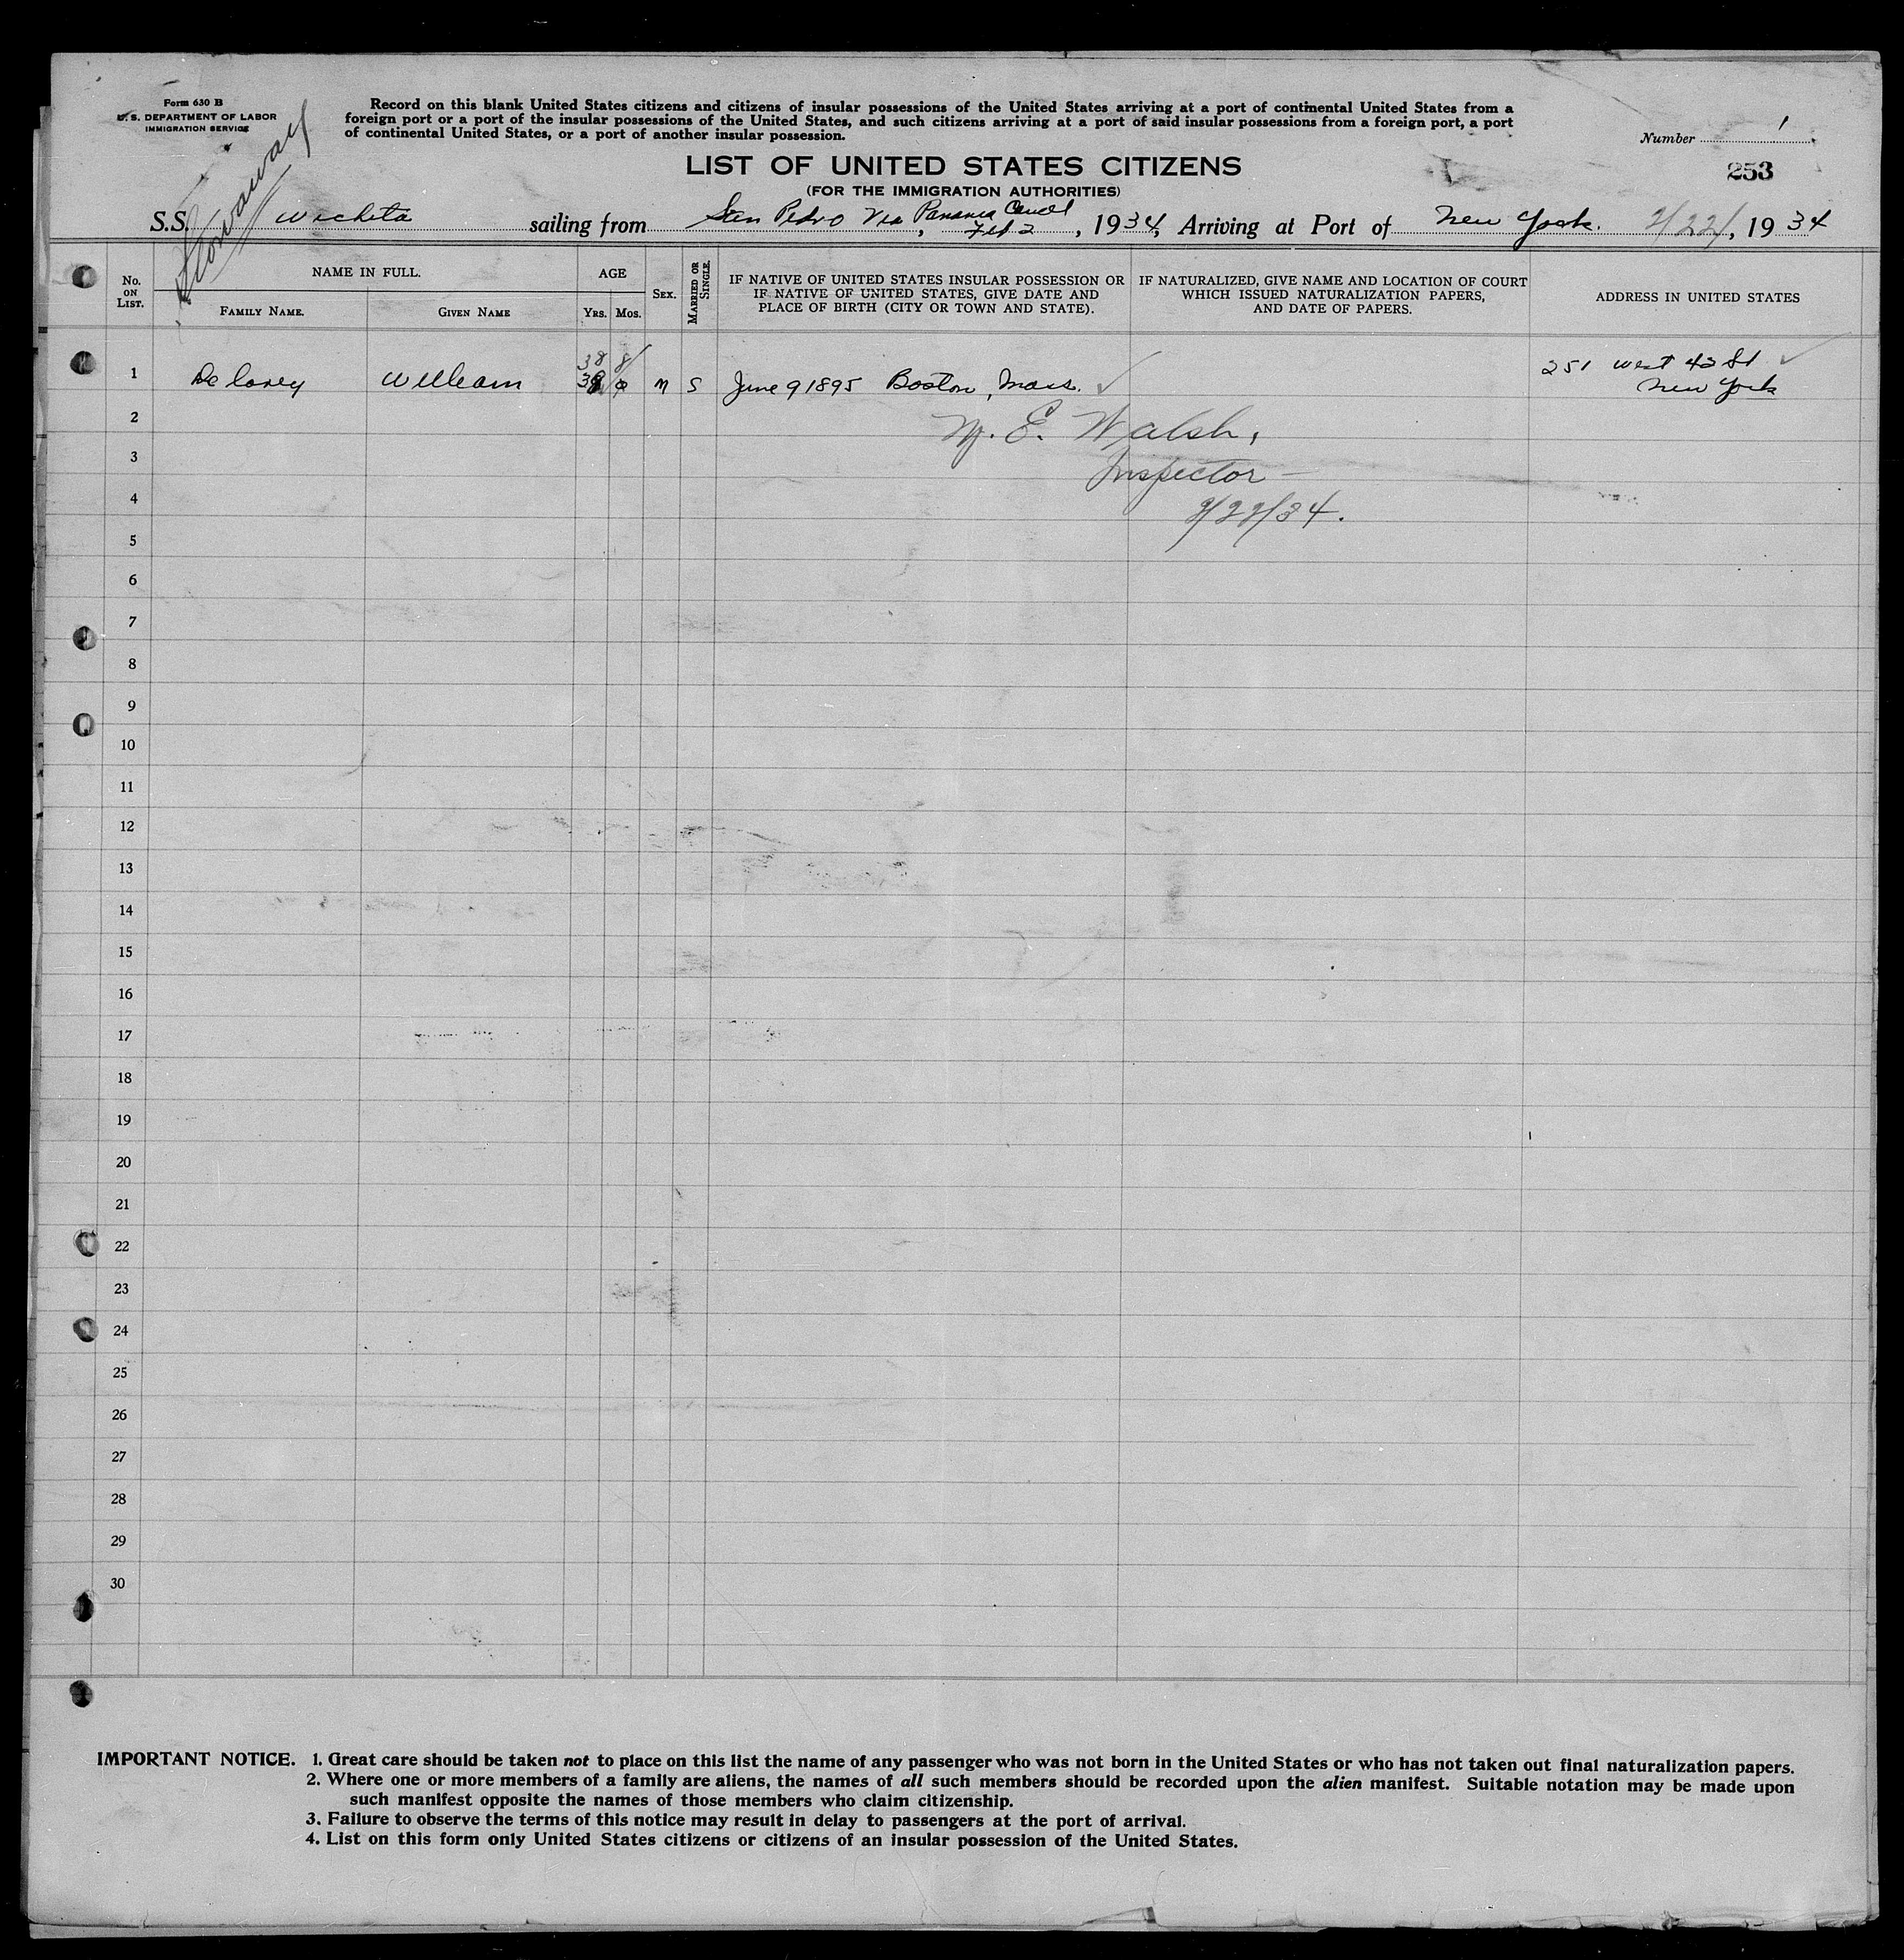 Form 630 B
U. S. DEPARTMENT OF LABOR
IMMIGRATION SERVICE
Stowaway
Record on this blank United States citizens and citizens of insular possessions of the United States arriving at a port of continental United States from a
foreign port or a port of the insular possessions of the United States, and such citizens arriving at a port of said insular possessions from a foreign port, a port
of continental United States, or a port of another insular possession.
Number 1
253
LIST OF UNITED STATES CITIZENS
(FOR THE IMMIGRATION AUTHORITIES)
S.S. Wichita sailing from San Pedro Via Panama Canal, Feb 2, 1934, Arriving at Port of New York. 2/22/, 1934
No. ON LIST.
NAME IN FULL.
FAMILY NAME.
GIVEN NAME
AGE
YRS.
MOS.
SEX.
MARRIED OR SINGLE.
IF NATIVE OF UNITED STATES INSULAR POSSESSION OR
IF NATIVE OF UNITED STATES, GIVE DATE AND
PLACE OF BIRTH (CITY OR TOWN AND STATE).
IF NATURALIZED, GIVE NAME AND LOCATION OF COURT
WHICH ISSUED NATURALIZATION PAPERS,
AND DATE OF PAPERS.
ADDRESS IN UNITED STATES
38 8/
1 Delaney William M S June 9 1895 Boston, Mass. 251 West 42 St
New York
2
M. E. Walsh,
3
Inspector
4
2/22/34.
5
6
7
8
9
10
11
12
13
14
15
16
17
18
19
20
21
22
23
24
25
26
27
28
29
30
IMPORTANT NOTICE. 1. Great care should be taken not to place on this list the name of any passenger who was not born in the United States or who has not taken out final naturalization papers.
2. Where one or more members of a family are aliens, the names of all such members should be recorded upon the alien manifest. Suitable notation may be made upon
such manifest opposite the names of those members who claim citizenship.
3. Failure to observe the terms of this notice may result in delay to passengers at the port of arrival.
4. List on this form only United States citizens or citizens of an insular possession of the United States.